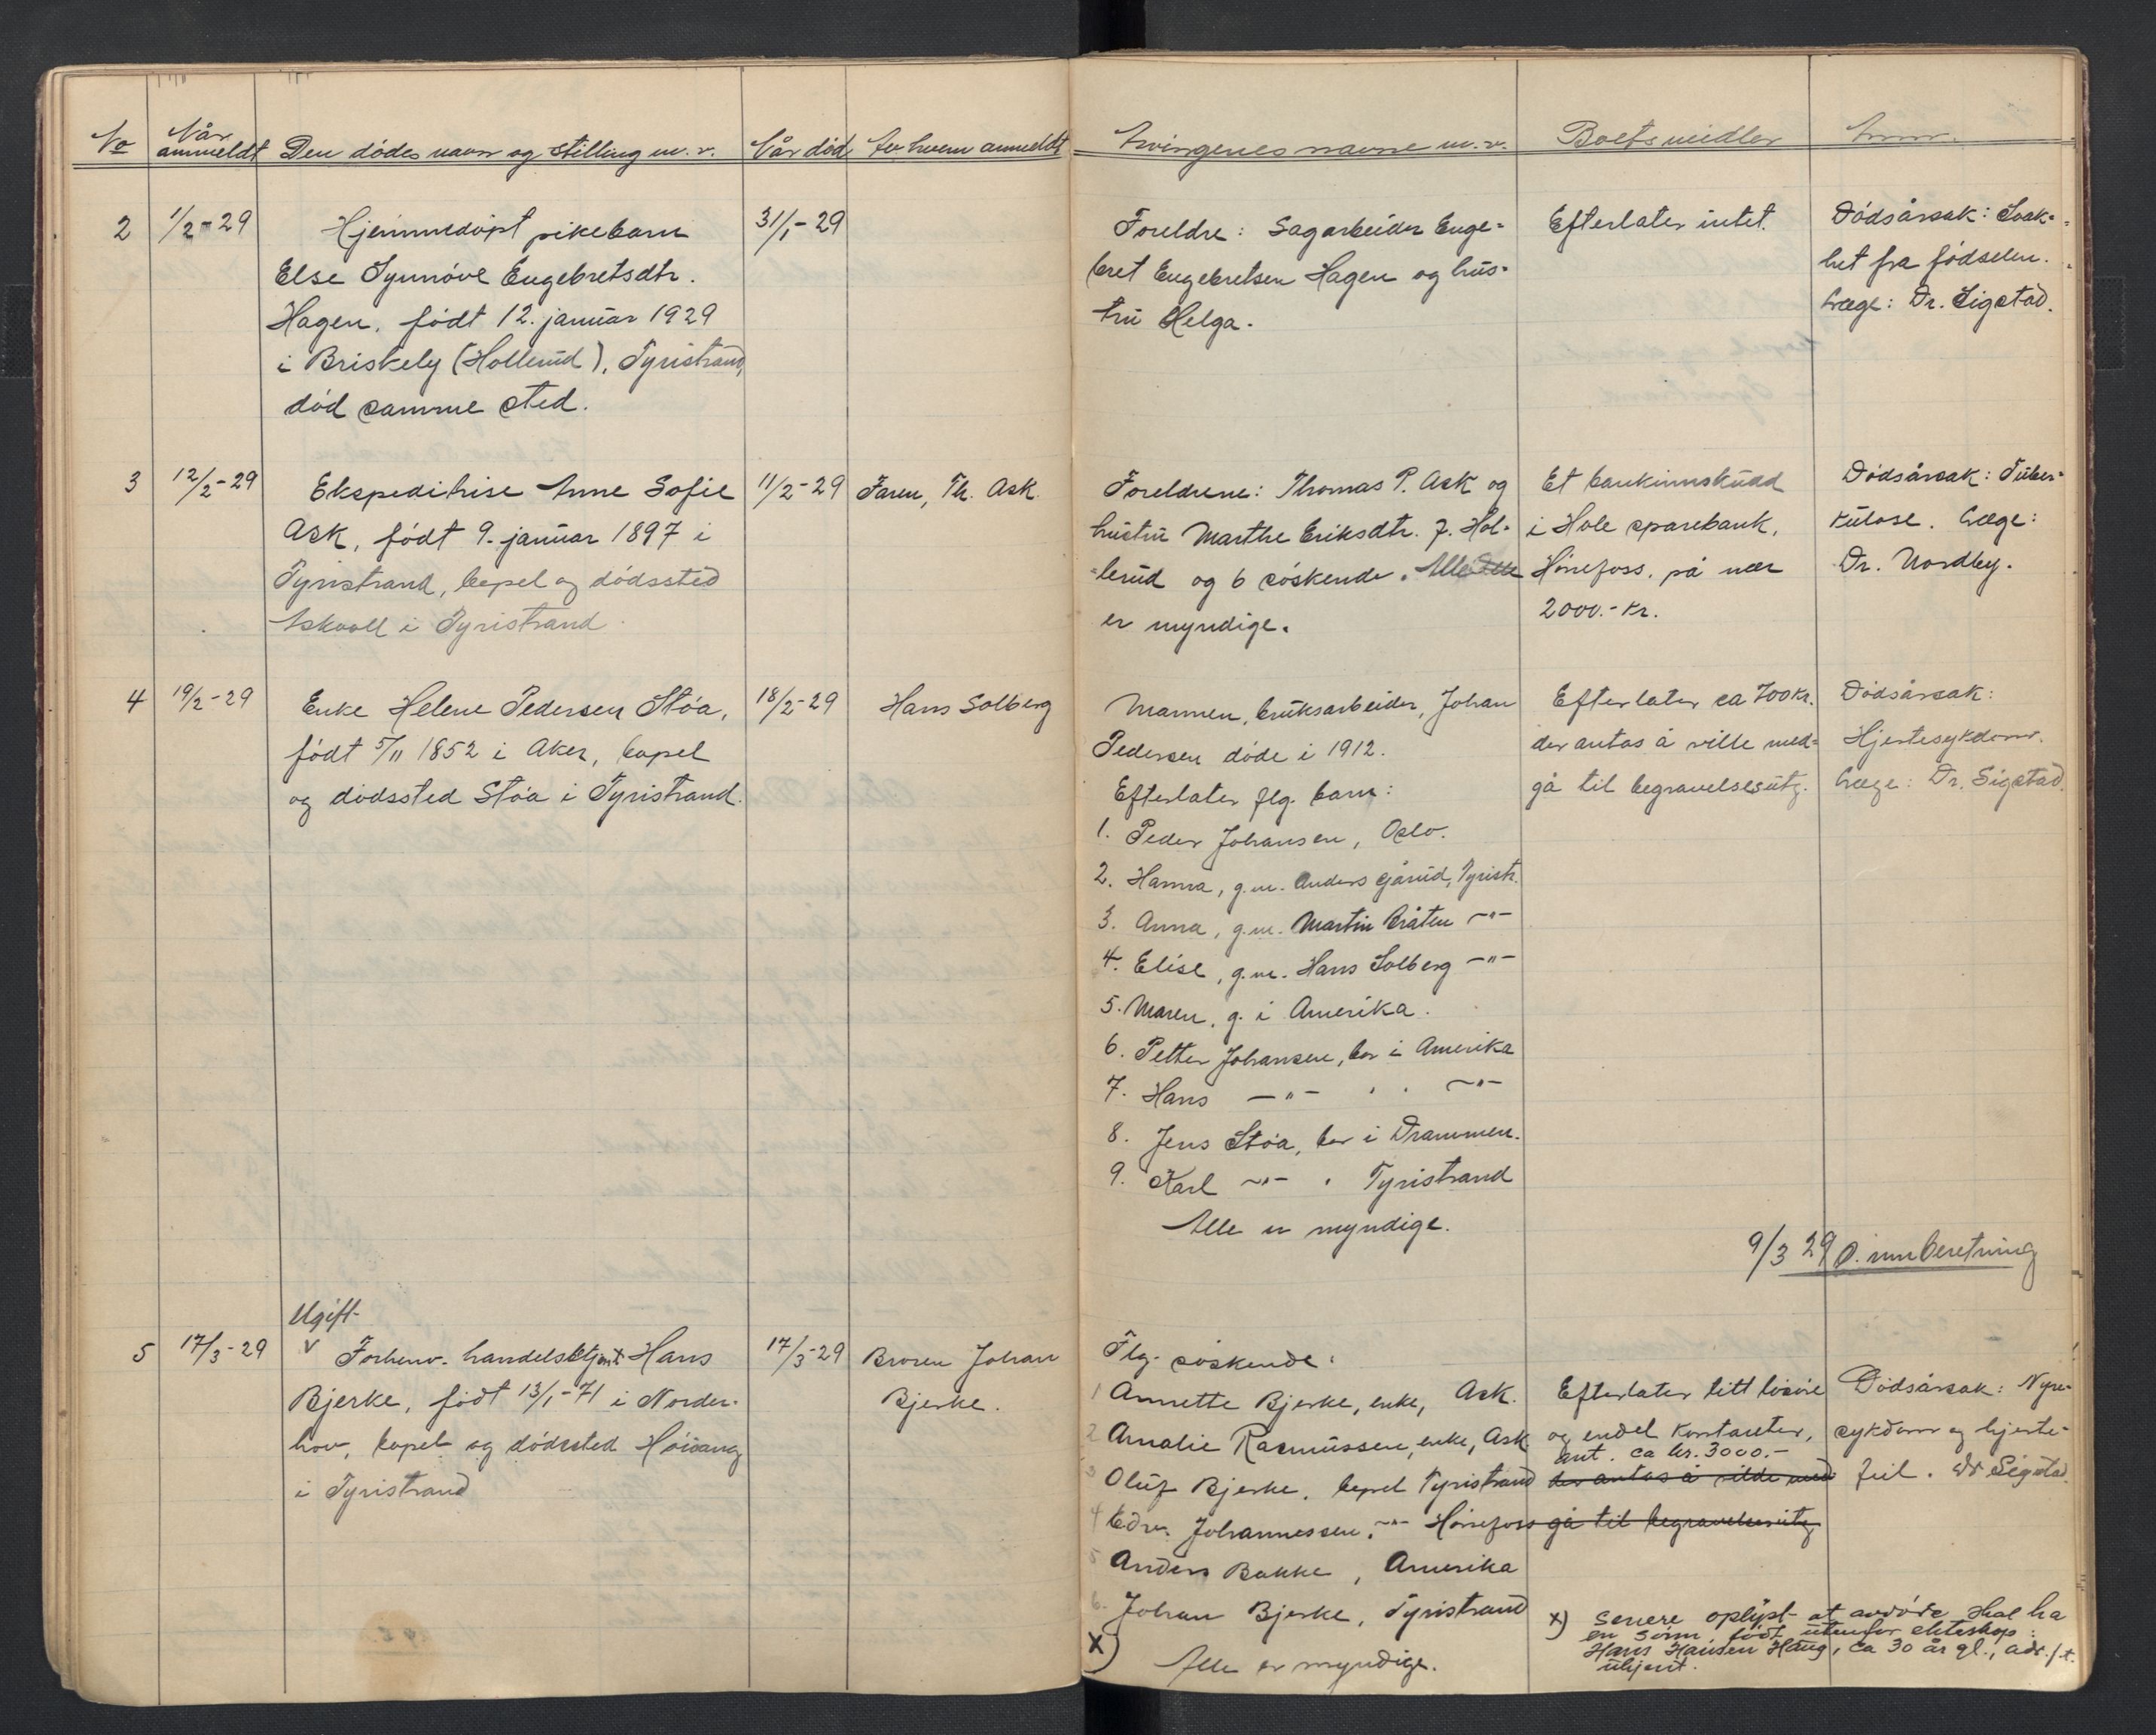 No
Når anmeldt
Den dødes navn og stilling m. v.
Når død
Av hvem anmeldt
Arvingenes navne m. v.
Boets midler
Anm.
2
1/2-29
Hjemmedøpt pikebarn
Else Synnøve Engebretsdtr.
Hagen, født 12. januar 1929
i Briskely (Hollerud), Tyristrand,
død samme sted.
31/1-29
Foreldre: Sagarbeider Enge-
bret Engebretsen Hagen og hus-
tru Helga.
Efterlater intet.
Dødsårsak: Svak-
het fra fødselen.
Læge: Dr. Sigstad.
3
12/2-29
Ekspeditrise Anne Sofie
Ask, født 9. januar 1897 i
Tyristrand, bopel og dødssted
Askvoll i Tyristrand.
11/2-29
Faren, Th. Ask.
Foreldrene: Thomas P. Ask og
hustru Marthe Eriksdtr. f. Hol-
lerud og 6 søskende. Alle
er myndige.
Et bankinnskudd
i Hole sparebank,
Hønefoss, på nær
2000.- kr.
Dødsårsak: Tuber-
kulose. Læge:
Dr. Nordby.
4
19/2-29
Enke Helene Pedersen Støa,
født 5/11 1852 i Aker, bopel
og dødssted Støa i Tyristrand.
18/2-29
Hans Solberg
Mannen, bruksarbeider, Johan
Pedersen døde i 1912.
Efterlater flg. barn:
1. Peder Johansen, Oslo.
2. Hanna, g.m. Anders Gjårud, Tyristr.
3. Anna, g.m. Martin Bråten -"-
4. Elise, g.m. Hans Solberg -"-
5. Maren, g. i Amerika.
6. Petter Johansen, bor i Amerika
7. Hans -"- " " -"-
8. Jens Støa, bor i Drammen.
9. Karl -"- " Tyristrand
Alle er myndige.
Efterlater ca 700 kr.
der antas å ville med-
gå til begravelsesutg.
Dødsårsak:
Hjertesykdom.
Læge: Dr. Sigstad.
9/3 29 S. innberetning
5
17/3-29
Ugift
v Forhenv. handelsbetjent Hans
Bjerke, født 13/1-71 i Norder-
hov, bopel og dødssted Høivang
i Tyristrand
17/3-29
Broren Johan
Bjerke.
Flg. søskende:
1 Annette Bjerke, enke, Ask.
2 Amalie Rasmussen, enke, Ask
3 Oluf Bjerke, bopel Tyristrand
4 Edv. Johannessen, -"- Hønefoss
5 Anders Bakke, Amerika
6. Johan Bjerke, Tyristrand
x) Alle er myndige.
Efterlater litt løsøre
og endel kontanter,
ant. ca kr. 3000.-
der antas å vilde med
gå til begravelsesutg.
Dødsårsak: Nyre-
sykdom og hjerte-
feil. Dr Sigstad.
x) Senere oplyst at avdøde skal ha
en sønn, født utenfor ekteskap:
Hans Hansen Haug, ca 30 år gl., adr. f.t.
ukjent.